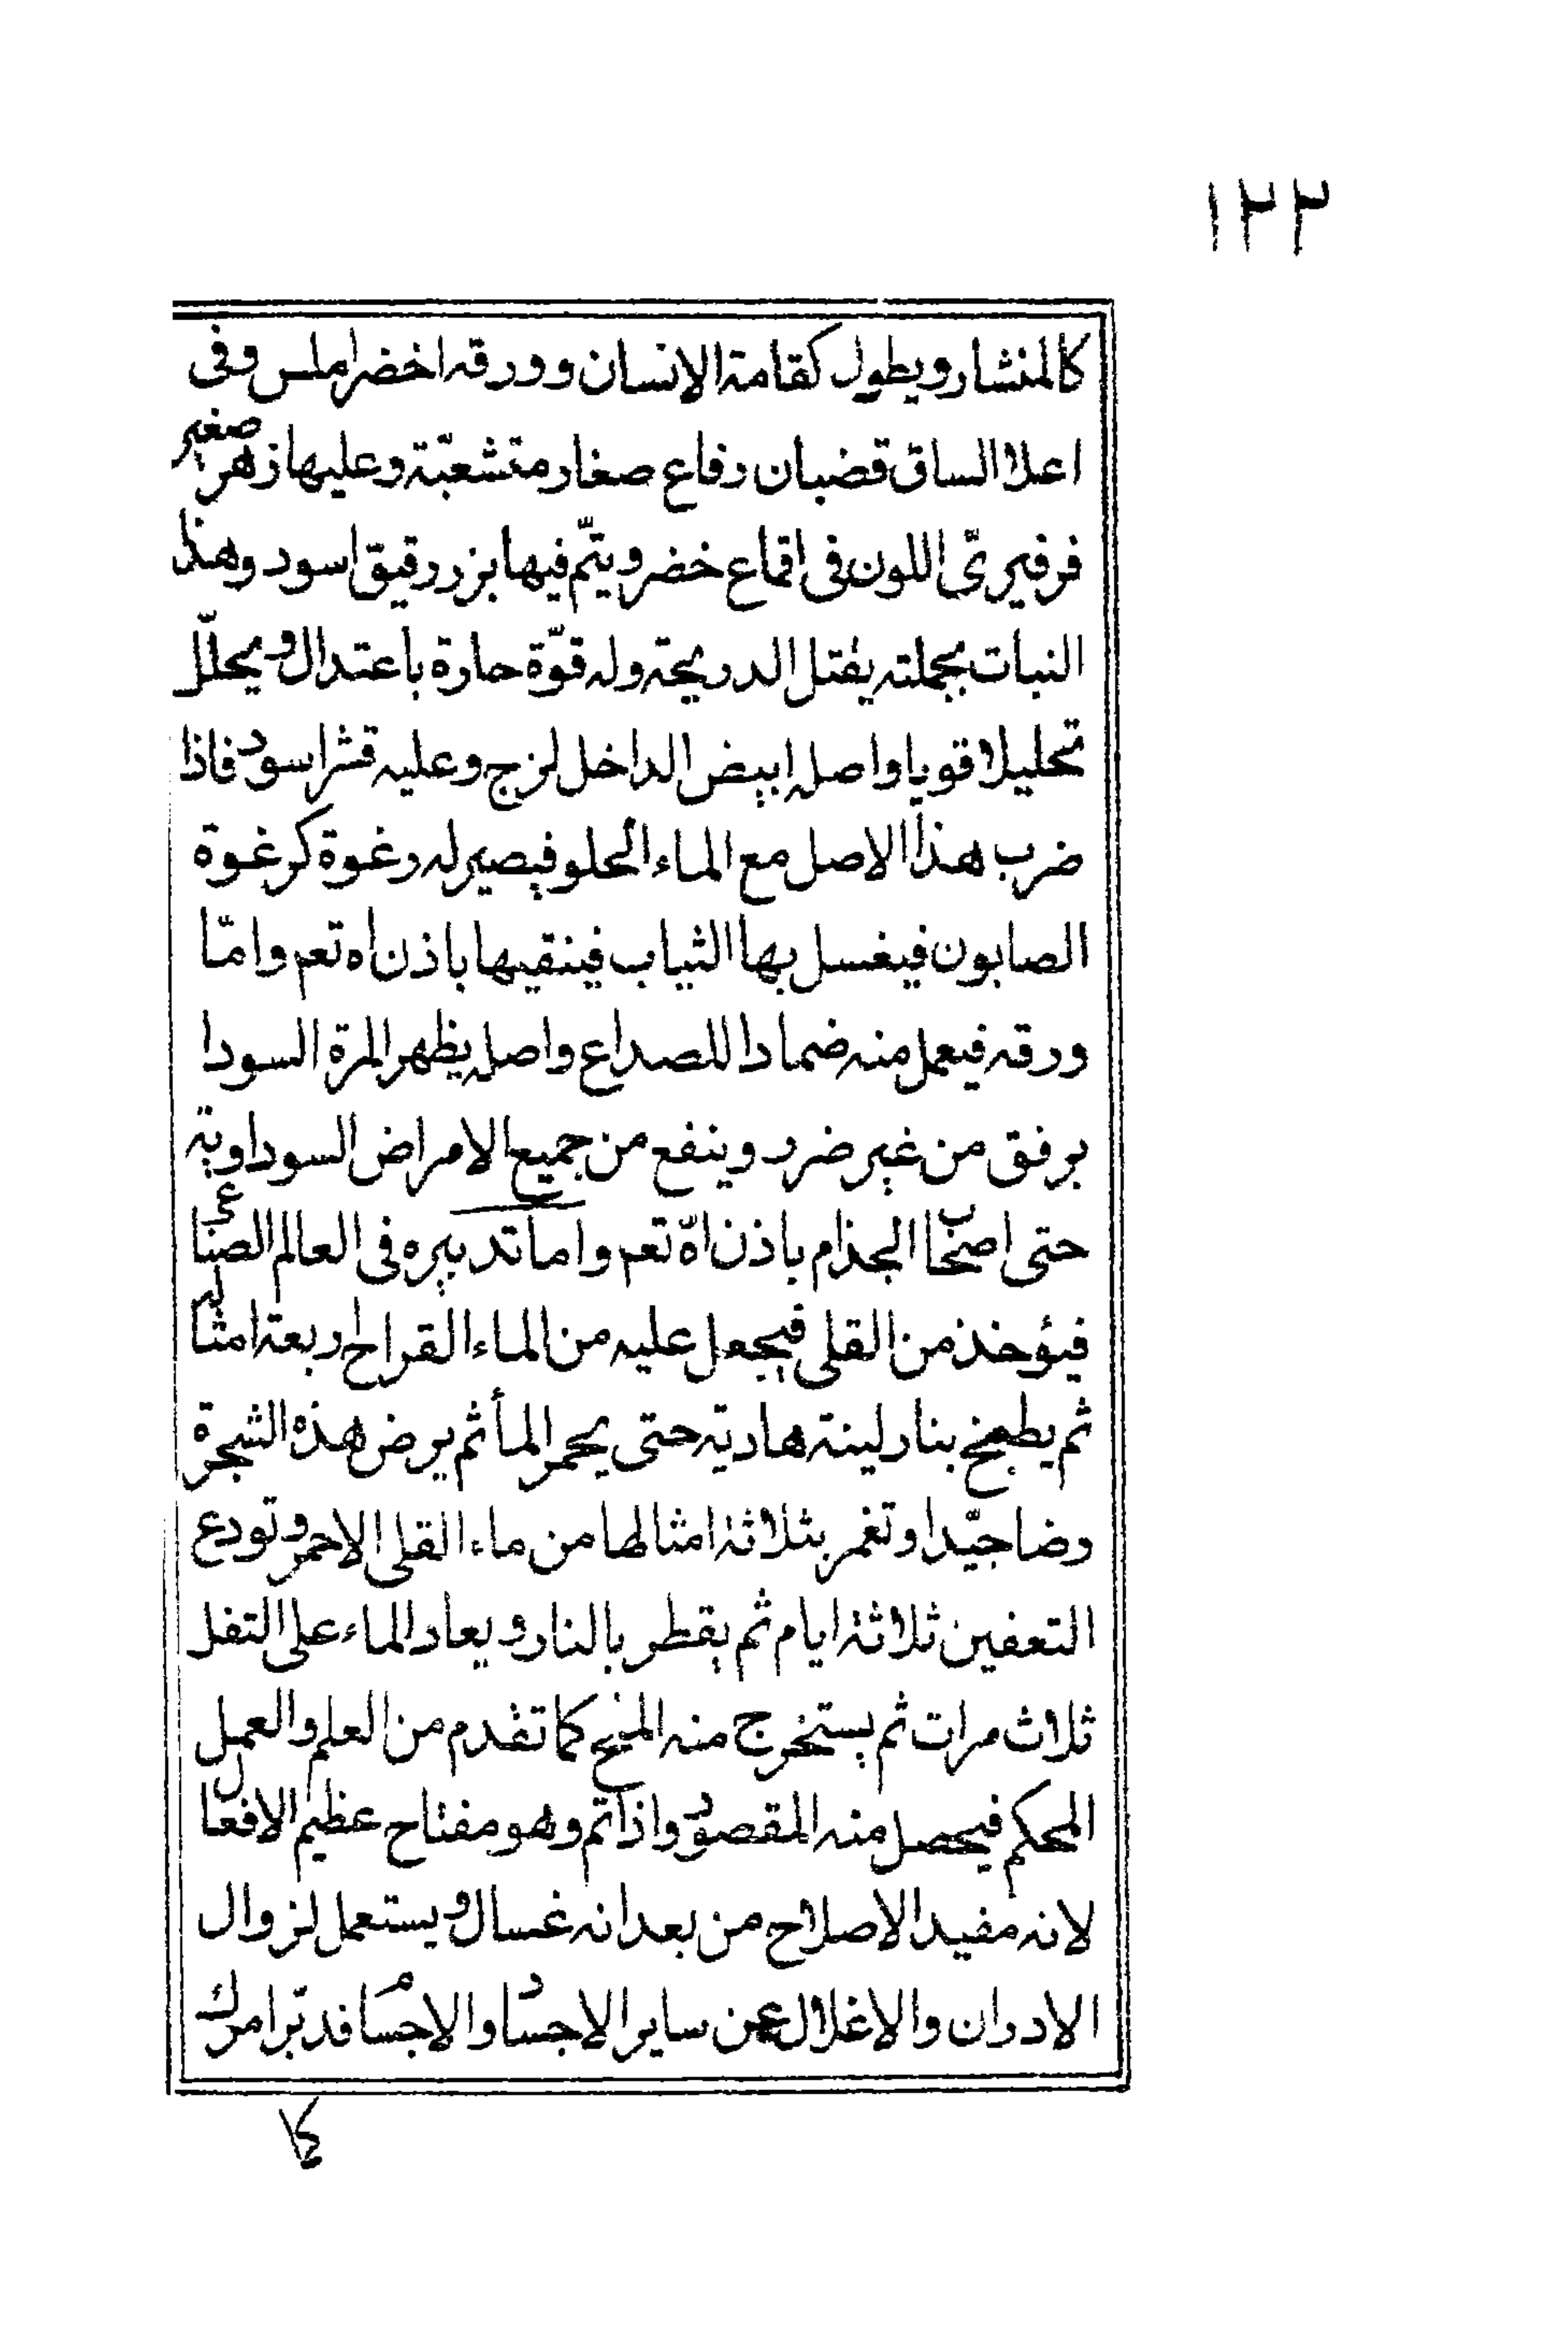 ١٢٢
كالمنشار ويطول كقامة الانسان وورقه اخضر املس وفى
اعلا الساق قضبان رفاع صغار متشعبّة وعليها زهر صغير
فرفيرىّ اللون فى اقماع خضر ويتمّ فيها بزر رقيق اسود وهذا
النبات بجملته يقتل الدريجة وله قوّة حارة باعتدال ويحلّل
تحليلا قويا واصله ابيض الداخل لزج وعليه قشر اسود فاذا
ضرب هذا الاصل مع الماء الحلو فيصير له رغوة كرغوة
الصابون فيغسل بها الثياب فينقيها باذن اه تعم وامّا
ورقه فيعمل منه ضمادا للصداع واصله يظهر المرة السودا
برفق من غير ضرر وينفع من جميع الامراض السوداوية
حتى اصحاب الجذام باذن اهّ تعم واما تدبيره فى العالم الصناعى
فيؤخذ من القلى فيجعل عليه من الماء القراح اربعة امثاله
ثم يطبخ بنار لينة هادية حتى يحمر المأ ثم يرض هذه الشجرة
رضا جيّدا وتغمر بثلاثة امثالها من ماء القلى الاحمر وتودع
التعفين ثلاثة ايام ثم يقطر بالنار ويعاد الماء على التفل
ثلاث مرات ثم يستخرج منه الملح كما تقدم من العلم والعمل
المحكم فيحصل منه المقصود واذا تم وهو مفتاح عظيم الافعال
لانه مفيد الاصلاح من بعد انه غسال ويستعمل لزوال
الادران والاغلال عن ساير الاجساد والاجسام فدبّر امرك
كا